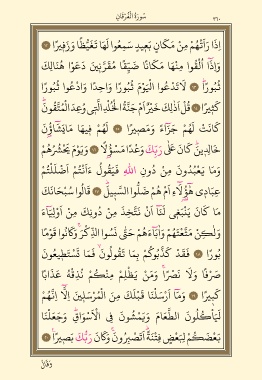 سُورَةُ الْفُرْقَانِ ٣٦٠
إِذَا رَأَتْهُمْ مِنْ مَكَانٍ بَعِيدٍ سَمِعُوا لَهَا تَغَيُّظًا وَزَفِيرًا ﴿١٢﴾
وَإِذَا أُلْقُوا مِنْهَا مَكَانًا ضَيِّقًا مُقَرَّنِينَ دَعَوْا هُنَالِكَ
ثُبُورًا ﴿١٣﴾ لَا تَدْعُوا الْيَوْمَ ثُبُورًا وَاحِدًا وَادْعُوا ثُبُورًا
كَثِيرًا ﴿١٤﴾ قُلْ أَذٰلِكَ خَيْرٌ أَمْ جَنَّةُ الْخُلْدِ الَّتِي وُعِدَ الْمُتَّقُونَ
كَانَتْ لَهُمْ جَزَاءً وَمَصِيرًا ﴿١٥﴾ لَهُمْ فِيهَا مَا يَشَاؤُنَ
خَالِدِينَ كَانَ عَلٰى رَبِّكَ وَعْدًا مَسْؤُلًا ﴿١٦﴾ وَيَوْمَ يَحْشُرُهُمْ
وَمَا يَعْبُدُونَ مِنْ دُونِ اللّٰهِ فَيَقُولُ ءَاَنْتُمْ أَضْلَلْتُمْ
عِبَادِي هٰؤُلَاءِ أَمْ هُمْ ضَلُّوا السَّبِيلَ ﴿١٧﴾ قَالُوا سُبْحَانَكَ
مَا كَانَ يَنْبَغِي لَنَا أَنْ نَتَّخِذَ مِنْ دُونِكَ مِنْ أَوْلِيَاءَ
وَلٰكِنْ مَتَّعْتَهُمْ وَاٰبَاءَهُمْ حَتّٰى نَسُوا الذِّكْرَ وَكَانُوا قَوْمًا
بُورًا ﴿١٨﴾ فَقَدْ كَذَّبُوكُمْ بِمَا تَقُولُونَ فَمَا تَسْتَطِيعُونَ
صَرْفًا وَلَا نَصْرًا وَمَنْ يَظْلِمْ مِنْكُمْ نُذِقْهُ عَذَابًا
كَبِيرًا ﴿١٩﴾ وَمَا أَرْسَلْنَا قَبْلَكَ مِنَ الْمُرْسَلِينَ إِلَّا إِنَّهُمْ
لَيَأْكُلُونَ الطَّعَامَ وَيَمْشُونَ فِي الْأَسْوَاقِ وَجَعَلْنَا
بَعْضَكُمْ لِبَعْضٍ فِتْنَةً أَتَصْبِرُونَ وَكَانَ رَبُّكَ بَصِيرًا ﴿٢٠﴾
وَقَالَ